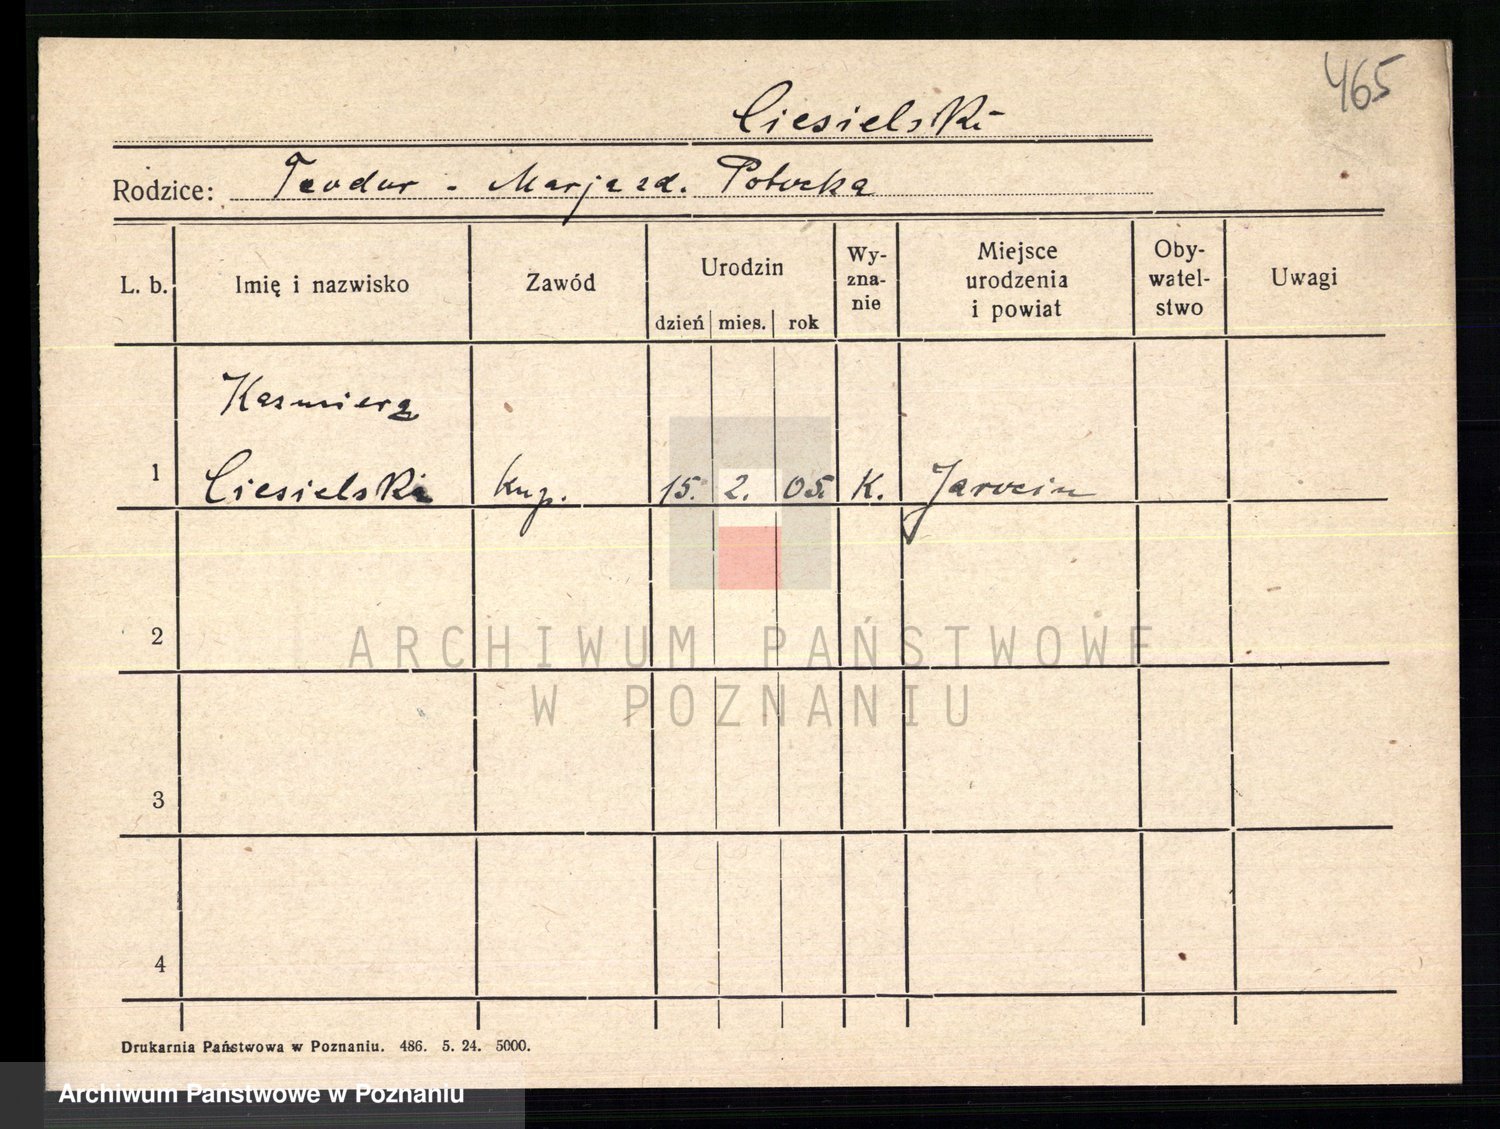 465
Ciesielski
Rodzice: Teodor - Marja zd. Potocka
L. b.
Imię i nazwisko
Zawód
Urodzin
dzień mies. rok
Wy-
zna-
nie
Miejsce
urodzenia
i powiat
Oby-
watel-
stwo
Uwagi
Kazmierz
1 Ciesielski kup. 15. 2. 05. K. Jarocin
2
ARCHIWUM PAŃSTWOWE
W POZNANIU
3
4
Drukarnia Państwowa w Poznaniu. 486. 5. 24. 5000.
Archiwum Państwowe w Poznaniu